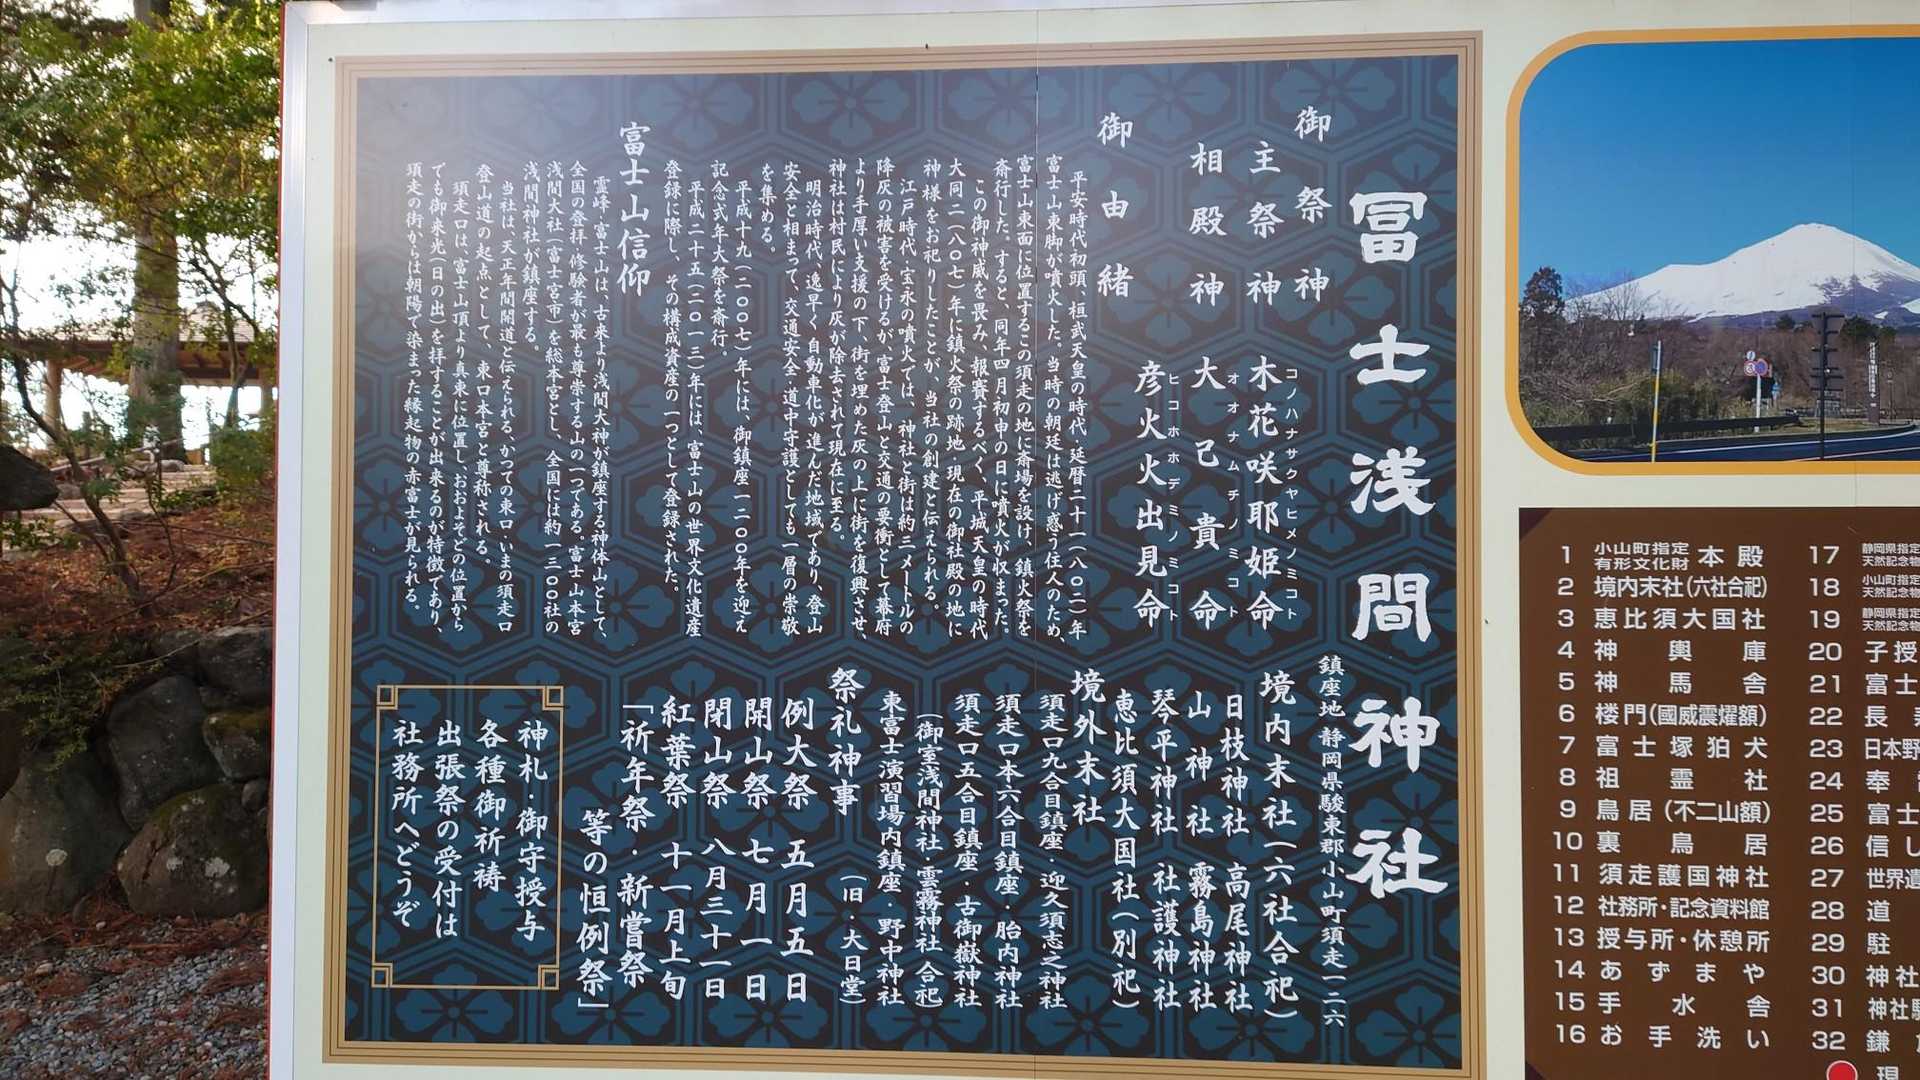 冨士浅間神社
鎮座地 静岡県駿東郡小山町須走一二六
御祭神
主祭神 木花咲耶姫命
コノハナサクヤヒメノミコト
相殿神 大己貴命
オオナムチノミコト
彦火火出見命
ヒコホホデミノミコト
御由緒
平安時代初頭、桓武天皇の時代・延暦二十一(八〇二)年
富士山東脚が噴火した。当時の朝廷は逃げ惑う住人のため、
富士山東面に位置するこの須走の地に斎場を設け、鎮火祭を
斎行した。すると、同年四月初申の日に噴火が収まった。
この御神威を畏み、報賽するべく、平城天皇の時代
大同二(八〇七)年に鎮火祭の跡地・現在の御社殿の地に
神様をお祀りしたことが、当社の創建と伝えられる。
江戸時代・宝永の噴火では、神社と街は約三メートルの
降灰の被害を受けるが、富士登山と交通の要衝として幕府
より手厚い支援の下、街を埋めた灰の上に街を復興させ、
神社は村民により灰が除去されて現在に至る。
明治時代、逸早く自動車化が進んだ地域であり、登山
安全と相まって、交通安全・道中守護としても一層の崇敬
を集める。
平成十九(二〇〇七)年には、御鎮座一二〇〇年を迎え
記念式年大祭を斎行。
平成二十五(二〇一三)年には、富士山の世界文化遺産
登録に際し、その構成資産の一つとして登録された。
富士山信仰
霊峰・富士山は、古来より浅間大神が鎮座する神体山として、
全国の登拝・修験者が最も尊崇する山の一つである。富士山本宮
浅間大社(富士宮市)を総本宮とし、全国には約一三〇〇社の
浅間神社が鎮座する。
当社は、天正年間開道と伝えられる、かつての東口・いまの須走口
登山道の起点として、東口本宮と尊称される。
須走口は、富士山頂より真東に位置し、おおよそどの位置から
でも御来光(日の出)を拝することが出来るのが特徴であり、
須走の街からは朝陽で染まった縁起物の赤富士が見られる。
境内末社(六社合祀)
日枝神社 高尾神社
山神社 霧島神社
琴平神社 社護神社
恵比須大国社(別祀)
境外末社
須走口九合目鎮座・迎久須志之神社
須走口本六合目鎮座・胎内神社
須走口五合目鎮座・古御嶽神社
(御室浅間神社・雲霧神社合祀)
東富士演習場内鎮座・野中神社
(旧・大日堂)
祭礼神事
例大祭 五月五日
開山祭 七月一日
閉山祭 八月三十一日
紅葉祭 十一月上旬
「祈年祭・新嘗祭
等の恒例祭」
神札・御守授与
各種御祈祷
出張祭の受付は
社務所へどうぞ
1 小山町指定有形文化財 本殿
2 境内末社(六社合祀)
3 恵比須大国社
4 神輿庫
5 神馬舎
6 楼門(國威震燿額)
7 富士塚狛犬
8 祖霊社
9 鳥居(不二山額)
10 裏鳥居
11 須走護国神社
12 社務所・記念資料館
13 授与所・休憩所
14 あずまや
15 手水舎
16 お手洗い
17 静岡県指定天然記念物
18 小山町指定天然記念物
19 静岡県指定天然記念物
20 子授
21 富士
22 長
23 日本野
24 奉
25 富士
26 信し
27 世界遺
28 道
29 駐
30 神社
31 神社
32 鎌
現